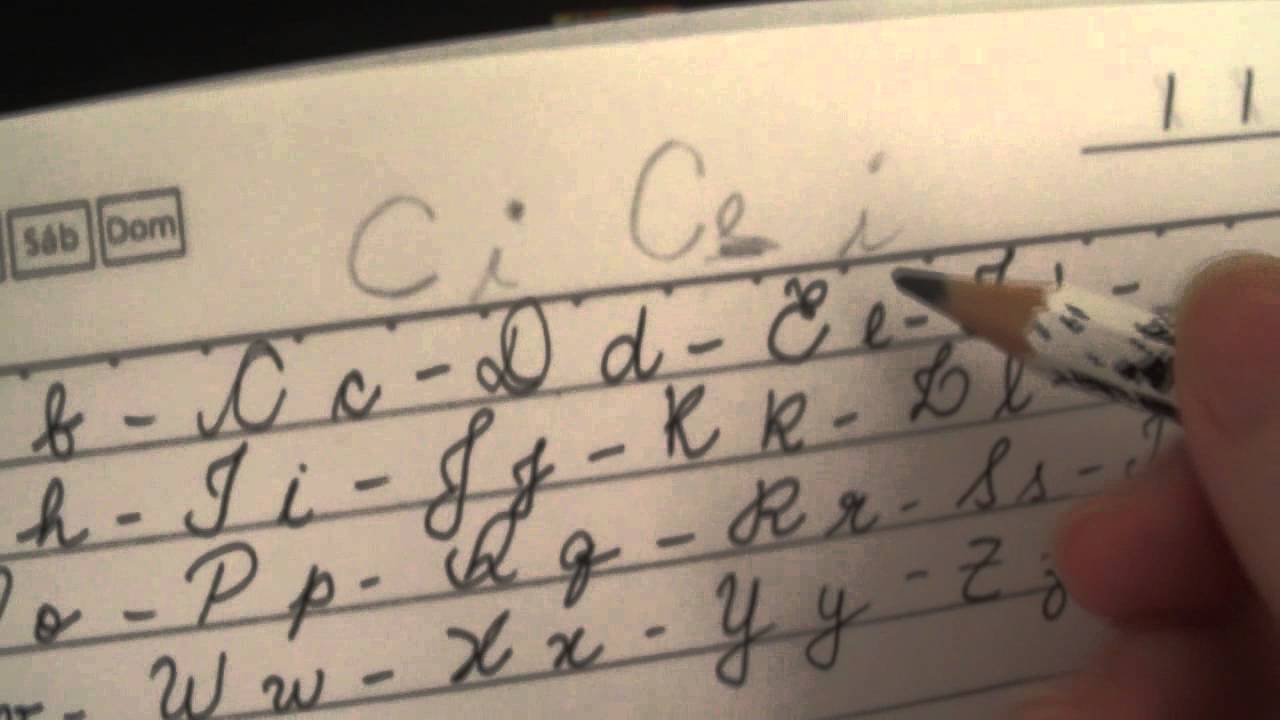 Sáb Dom
C i Ce i
b - C c - D d - E e -
h - I i - J j - K k - L l
o - P p - Q q - R r - S s -
W w - X x - Y y - Z z